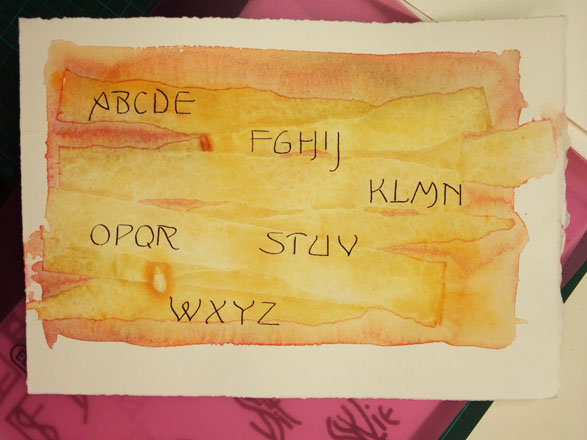 ABCDE
FGHIJ
KLMN
OPQR
STUV
WXYZ